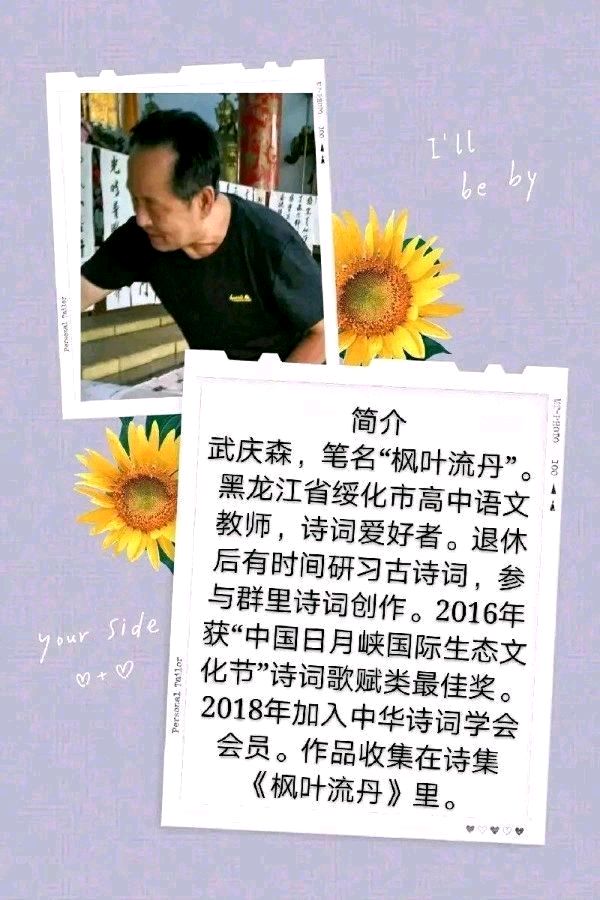 I'll
be by
Personal Tailor
简介
武庆森，笔名“枫叶流丹”。
黑龙江省绥化市高中语文
教师，诗词爱好者。退休
后有时间研习古诗词，参
与群里诗词创作。2016年
获“中国日月峡国际生态文
化节”诗词歌赋类最佳奖。
2018年加入中华诗词学会
会员。作品收集在诗集
《枫叶流丹》里。
your side
♡+♡
Personal Tailor